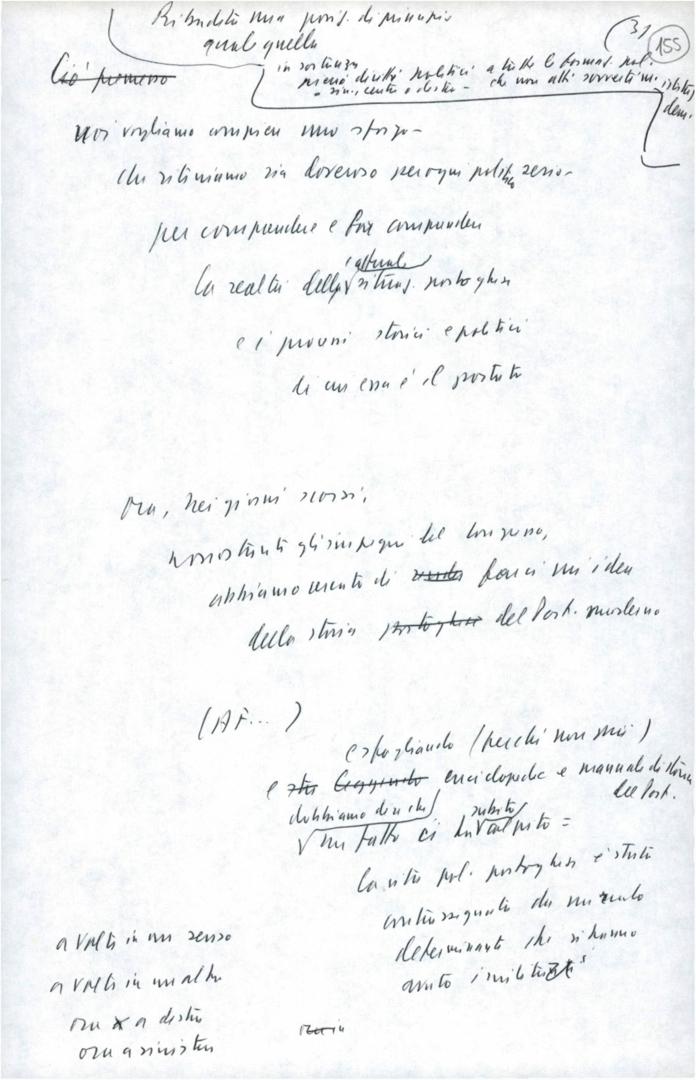 Ribadita una posiz. di principio
qual quella
3)
155
in sostanza
pieni diritti politici a tutte le formaz. pol.
o sin., centro o destra - che non atti sovversivi istituz.
dem.
Ciò premesso
Noi vogliamo compiere uno sforzo -
che riteniamo sia doveroso per ogni politico serio -
per comprendere e far comprendere
attuale
la realtà della situaz. portoghese
e i processi storici e politici
di cui essa è il portato
Ora, nei giorni scorsi,
nonostante gli impegni del Congresso,
abbiamo cercato di farci un'idea
della storia portoghese del Port. moderno
(AF... )
e sfogliando (perché non mai)
e leggendo enciclopedie e manuale di storia
del Port.
dobbiamo dire che subito
un fatto ci ha colpito =
la vita pol. portoghese è stata
contrassegnata da un ruolo
determinante che vi hanno
avuto i militari
a volte in un senso
a volte in un altro
ora a destra
ora a sinistra